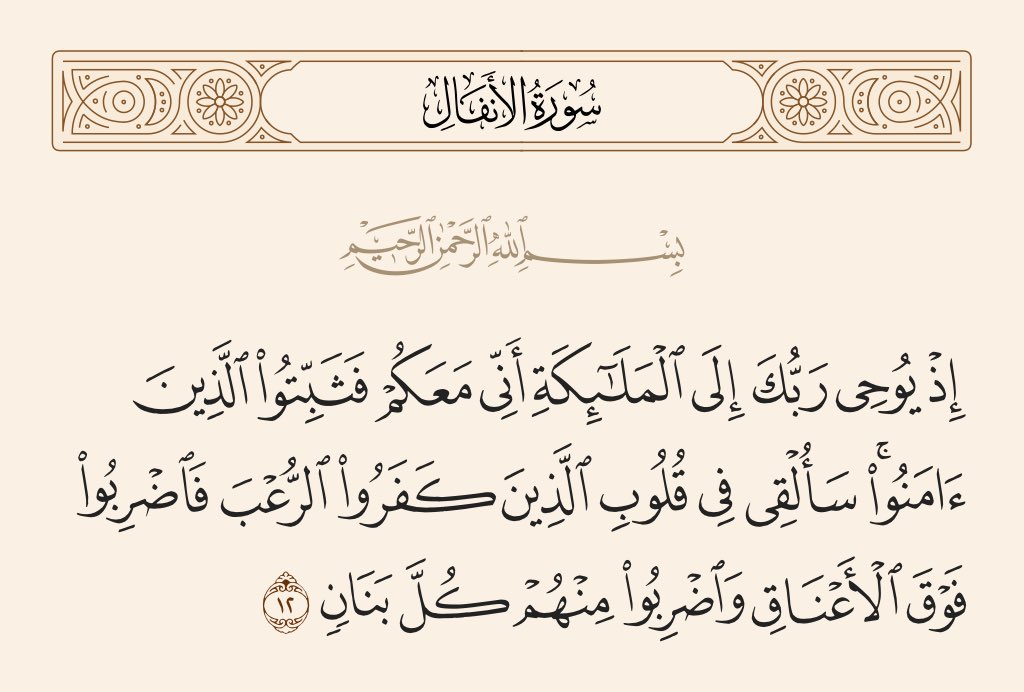 سُورَةُ الأَنفَالِ
بِسْمِ ٱللَّهِ ٱلرَّحْمَٰنِ ٱلرَّحِيمِ
إِذْ يُوحِى رَبُّكَ إِلَى ٱلْمَلَـٰٓئِكَةِ أَنِّى مَعَكُمْ فَثَبِّتُوا۟ ٱلَّذِينَ
ءَامَنُوا۟ ۚ سَأُلْقِى فِى قُلُوبِ ٱلَّذِينَ كَفَرُوا۟ ٱلرُّعْبَ فَٱضْرِبُوا۟
فَوْقَ ٱلْأَعْنَاقِ وَٱضْرِبُوا۟ مِنْهُمْ كُلَّ بَنَانٍ ١٢